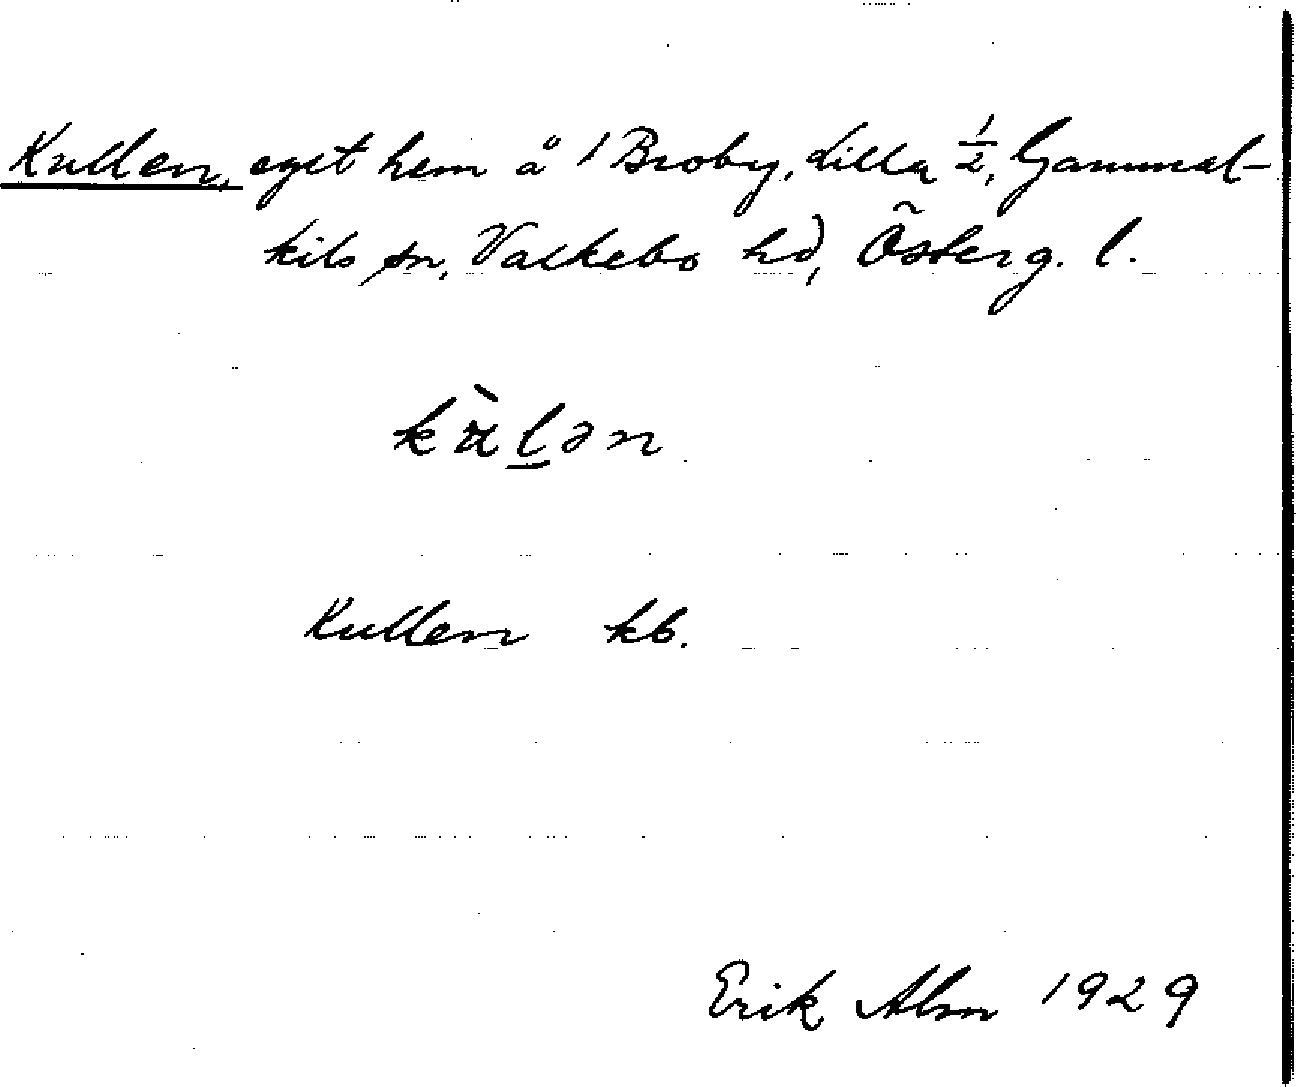 Kullen, eget hem å 1 Broby, Lilla ½, Gammal-
kils sn, Valkebo hd, Österg. l.
kàl̲ən
Kullen kb.
Erik Alm 1929